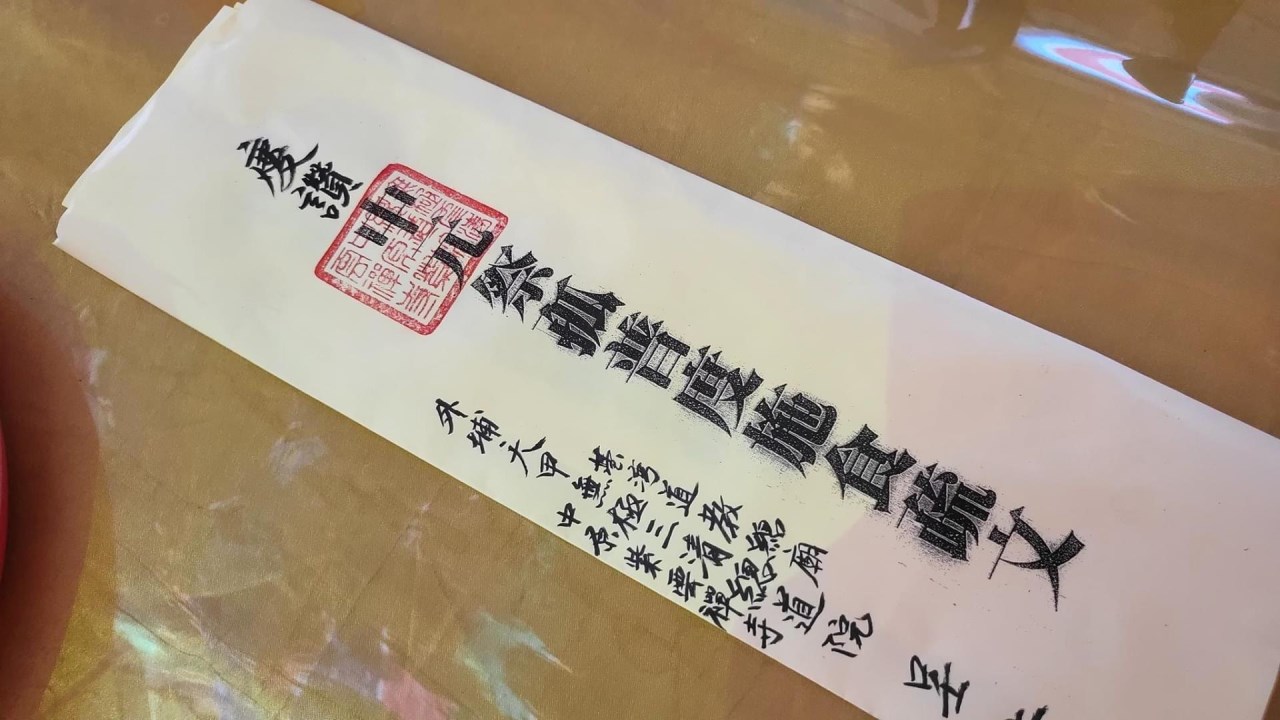 慶讚中元祭孤普度施食疏文
外埔、大甲
臺灣道教總廟
無極三清總道院
中原紫雲禪寺
呈